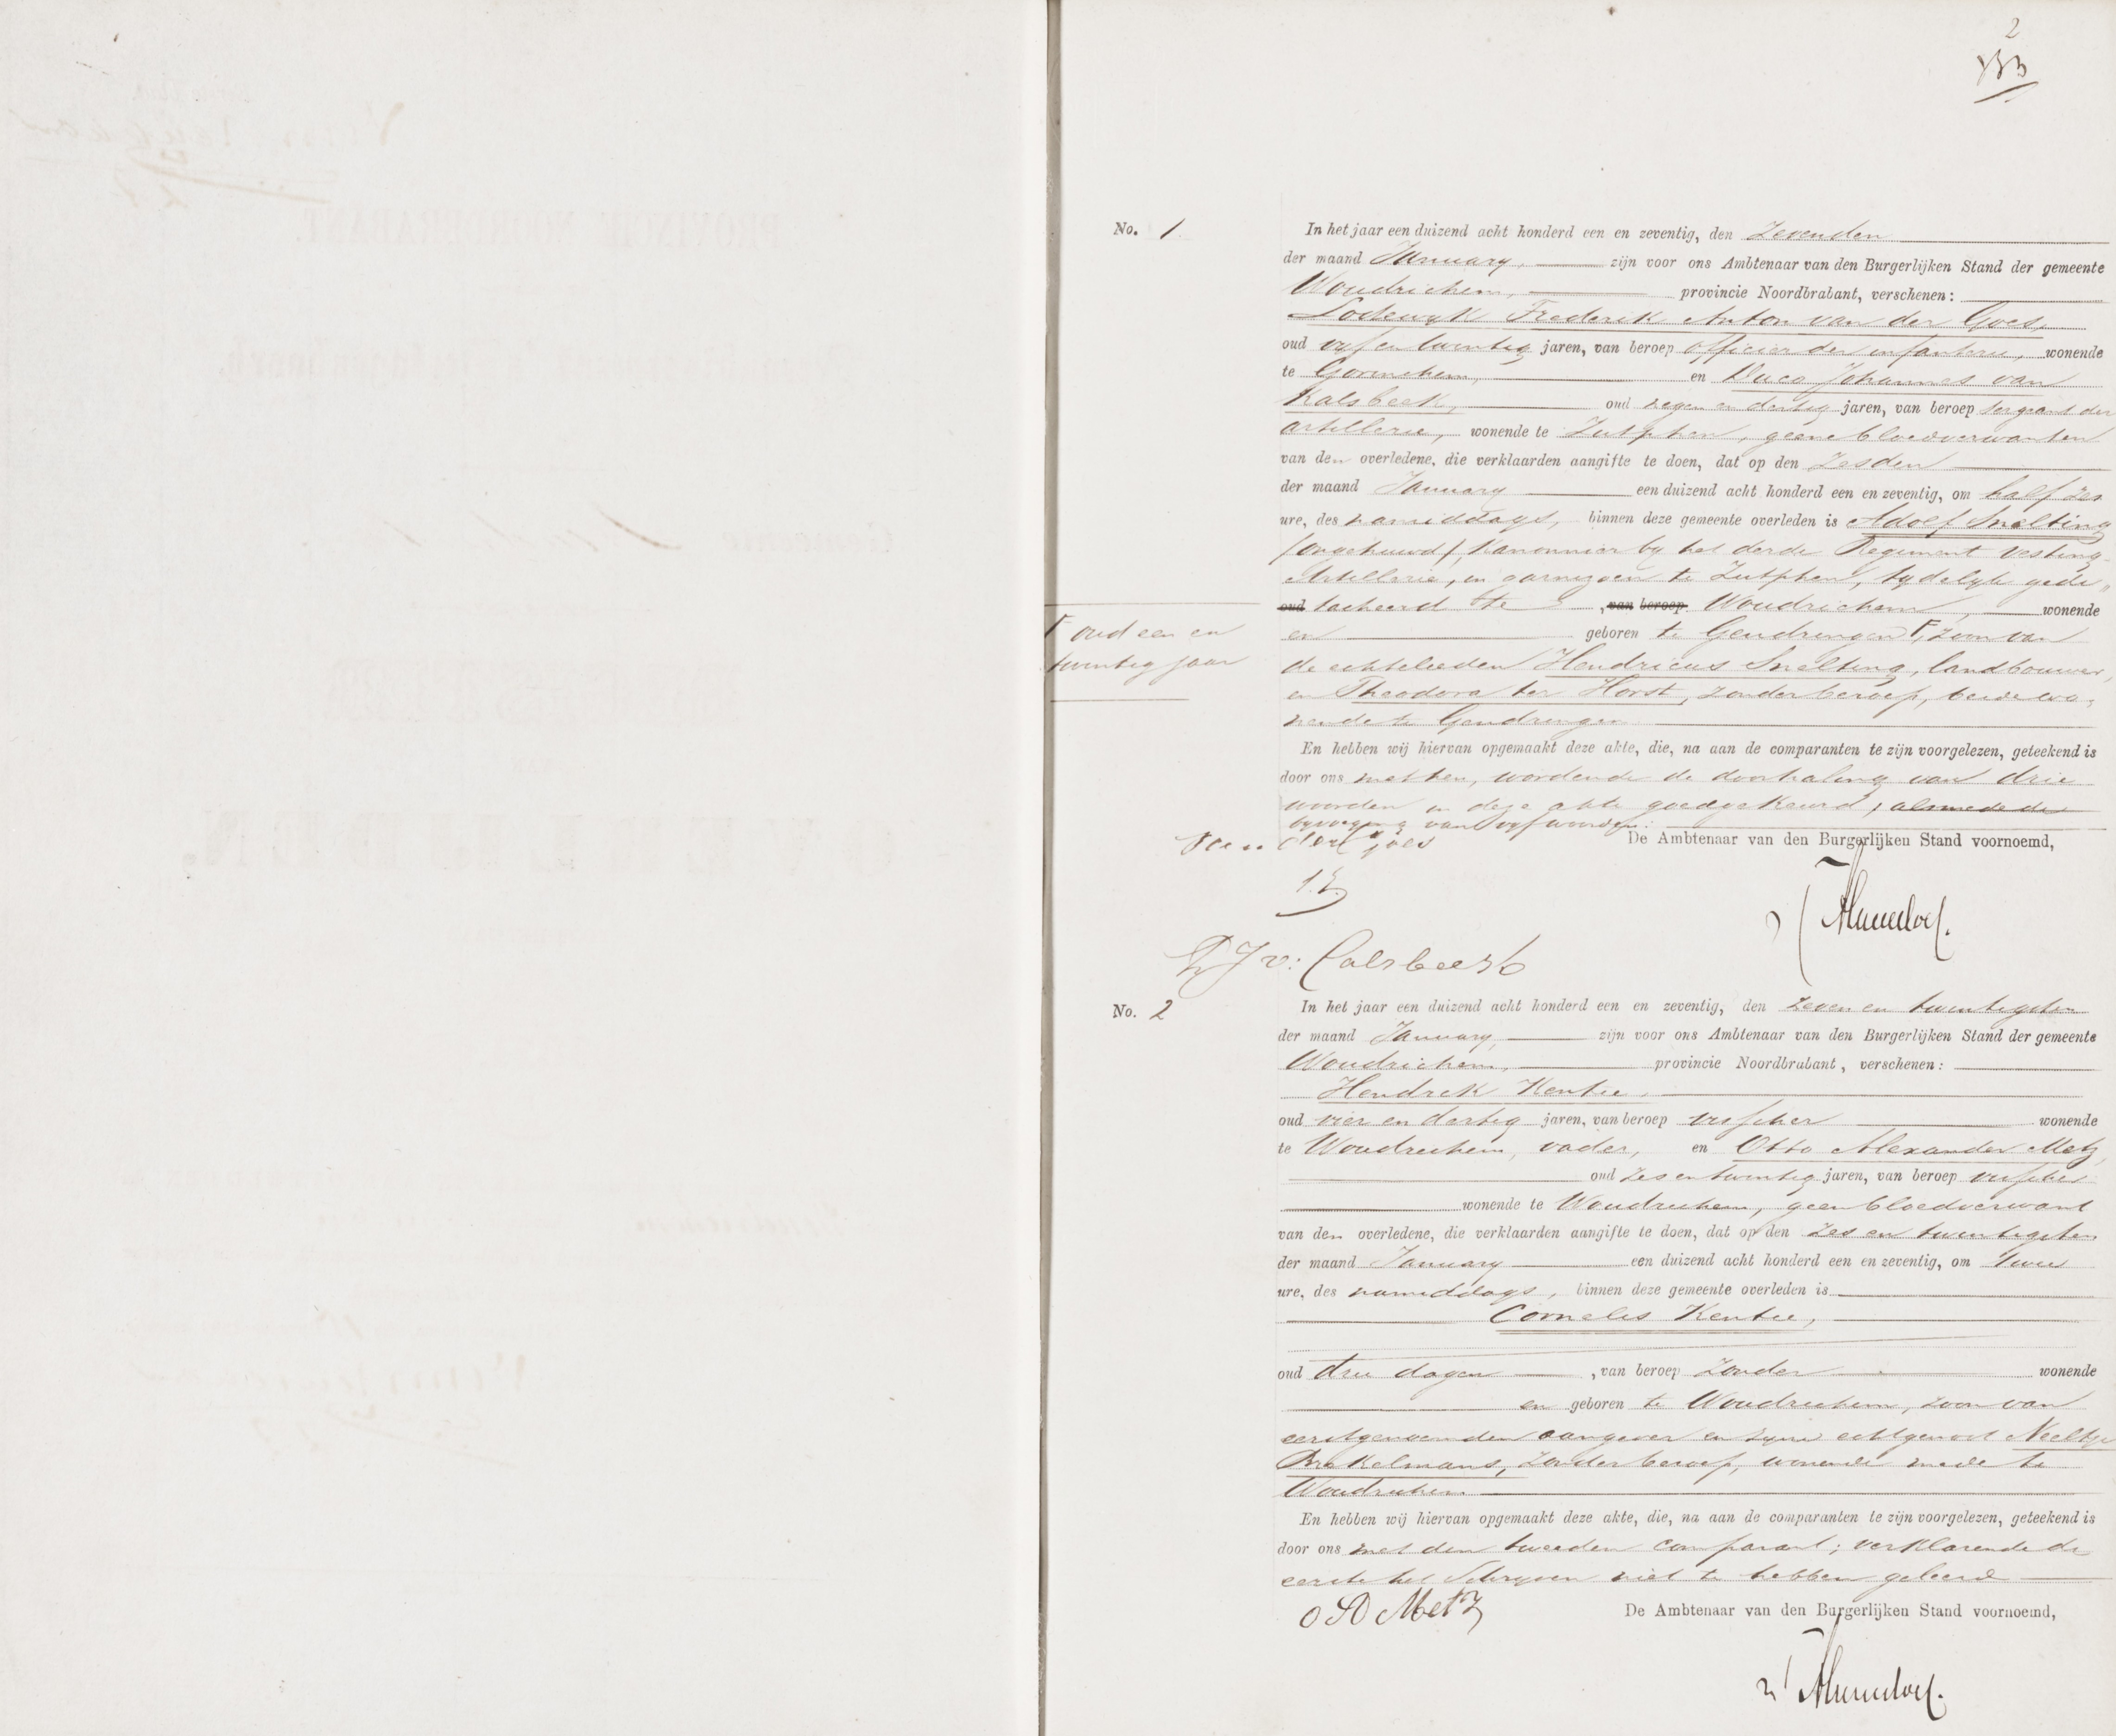 2
No. 1
In het jaar een duizend acht honderd een en zeventig, den Zevenden
der maand January, zijn voor ons Ambtenaar van den Burgerlijken Stand der gemeente
Woudrichem, provincie Noordbrabant, verschenen:
Lodewyk Frederik Anton van der Goes,
oud vyf en twintig jaren, van beroep officier der infanterie, wonende
te Gorinchem, en Duco Johannes van
Kalsbeek, oud negen en dertig jaren, van beroep sergeant der
artillerie, wonende te Zutphen, geene bloedverwanten
van den overledene, die verklaarden aangifte te doen, dat op den zesden
der maand January een duizend acht honderd een en zeventig, om half zes
ure, des namiddags, binnen deze gemeente overleden is Adolf Snelting
/ongehuwd/, Kanonnier by het derde Regiment Vesting-
Artillerie, in garnizoen te Zutphen, tydelyk gede-
oud tacheerd te , van beroep Woudrichem, wonende
en geboren te Gendringen F, zoon van
F oud een en
twintig jaar
de echtelieden Hendricus Snelting, landbouwer,
en Theodora ter Horst, zonder beroep, beide wo-
nende te Gendringen
En hebben wij hiervan opgemaakt deze akte, die, na aan de comparanten te zijn voorgelezen, geteekend is
door ons met hen, wordende de doorhaling van drie
woorden in deze akte goedgekeurd, alsmede de
byvoeging van vyf woorden.
De Ambtenaar van den Burgerlijken Stand voornoemd,
van der Goes
D J v: Calsbeek
No. 2
In het jaar een duizend acht honderd een en zeventig, den zeven en twintigsten
der maand January, zijn voor ons Ambtenaar van den Burgerlijken Stand der gemeente
Woudrichem, provincie Noordbrabant, verschenen:
Hendrik Kentie,
oud vier en dertig jaren, van beroep visscher wonende
te Woudrichem, vader, en Otto Alexander Metz,
oud zes en twintig jaren, van beroep visscher
wonende te Woudrichem, geen bloedverwant
van den overledene, die verklaarden aangifte te doen, dat op den zes en twintigsten
der maand January een duizend acht honderd een en zeventig, om twee
ure, des namiddags, binnen deze gemeente overleden is
Cornelis Kentie,
oud drie dagen , van beroep zonder wonende
en geboren te Woudrichem, zoon van
eerstgenoemden aangever en zyne echtgenoot Neeltje
Brakelmans, zonder beroep, wonende mede te
Woudrichem.
En hebben wij hiervan opgemaakt deze akte, die, na aan de comparanten te zijn voorgelezen, geteekend is
door ons met den tweeden comparant; verklarende de
eerste het schryven niet te hebben geleerd
O A Metz
De Ambtenaar van den Burgerlijken Stand voornoemd,